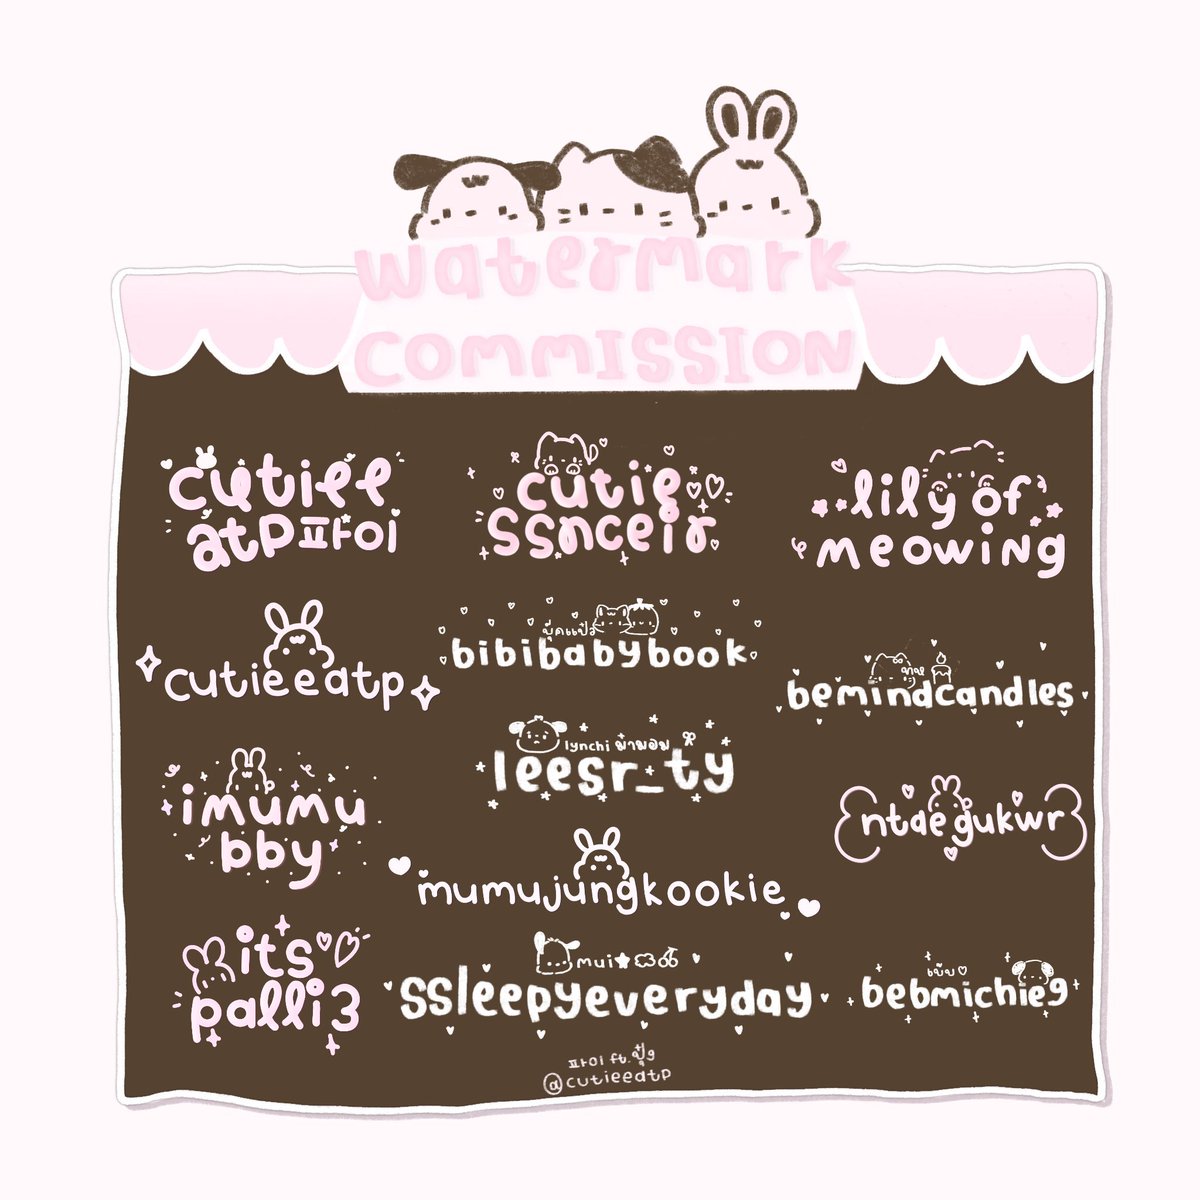 watermark
commission
cutiee
atp파이
cutie
ssnceir
lily of
meowing
cutieeatp
บุ๊คแป๋ว
bibibabybook
bemindcandles
lynchi ม๋ามอม
leesr_ty
imumu
bby
ntaegukwr
mumujungkookie
its
palli3
mui
ssleepyeveryday
เบ๊บ
bebmichie9
파이 ft.
@cutieeatp